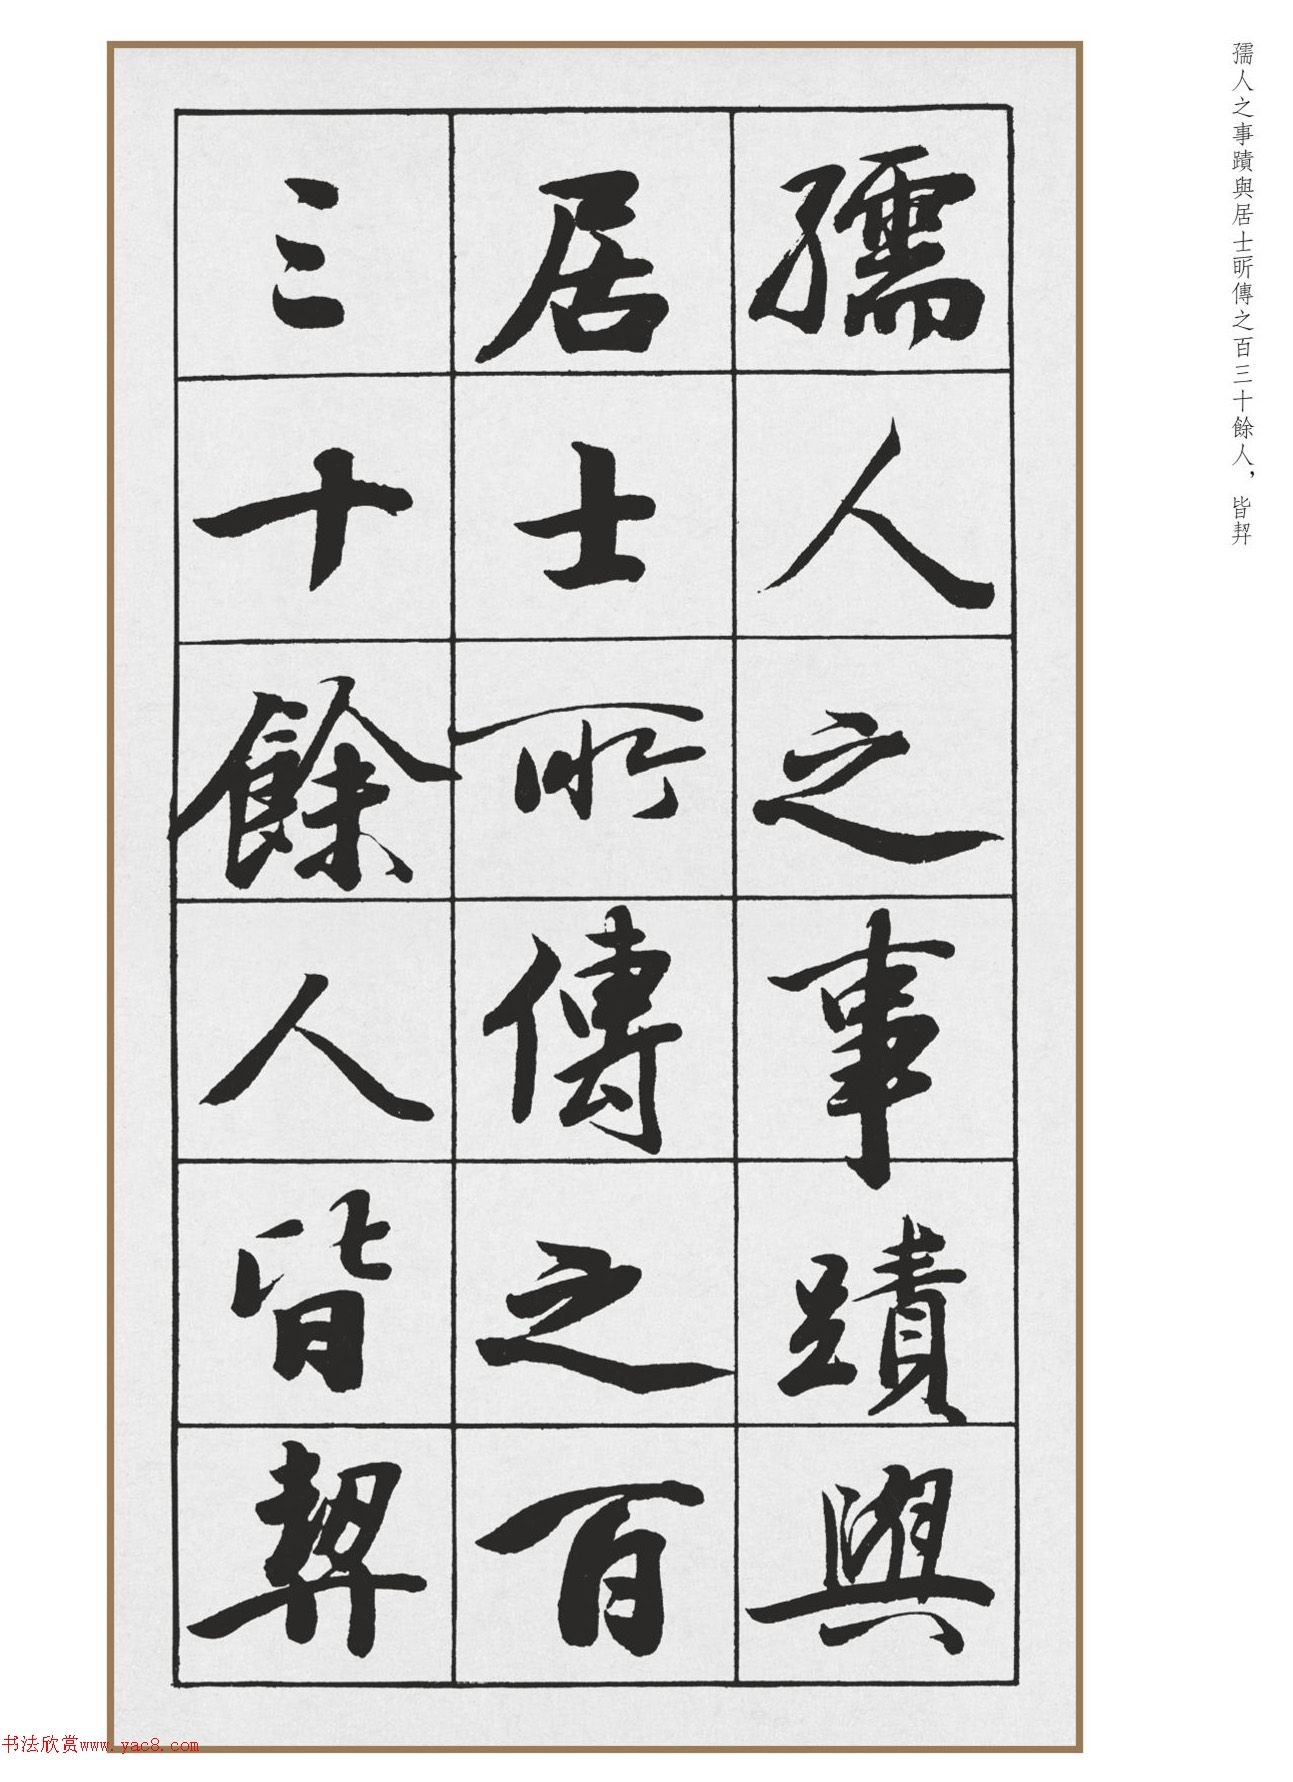 孺人之事蹟與
居士所傳之百
三十餘人皆契
孺人之事蹟與居士所傳之百三十餘人，皆契
书法欣赏www.yac8.com